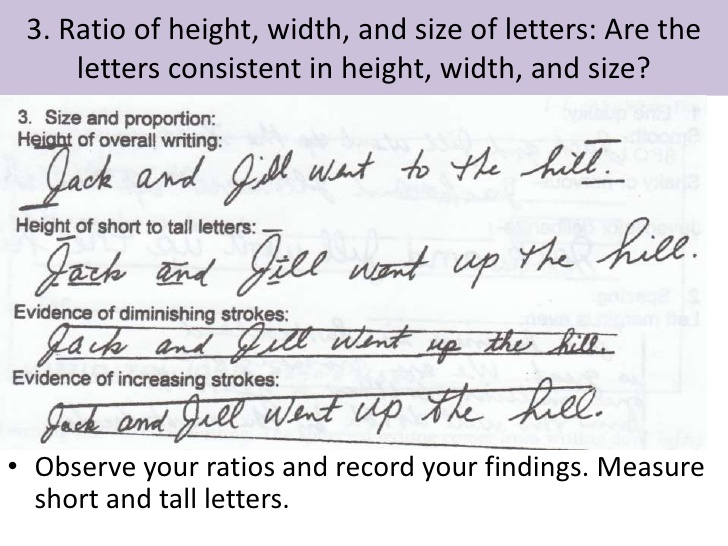 3. Ratio of height, width, and size of letters: Are the
letters consistent in height, width, and size?
3. Size and proportion:
Height of overall writing:
Jack and Jill went to the hill.
Height of short to tall letters:
Jack and Jill went up the hill.
Evidence of diminishing strokes:
Jack and Jill went up the hill.
Evidence of increasing strokes:
Jack and Jill went up the hill.
• Observe your ratios and record your findings. Measure
short and tall letters.